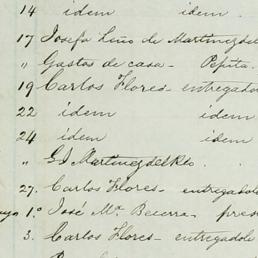 14 idem idem
17 Josefa Liño de Martinez del
" Gastos de casa - Pepita.
19 Carlos Flores - entregado
22 idem idem
24 idem idem
" G I Martinez del Rio.
27. Carlos Flores - entregadole
1.º José Mª Becerra - pres
3. Carlos Flores - entregadole